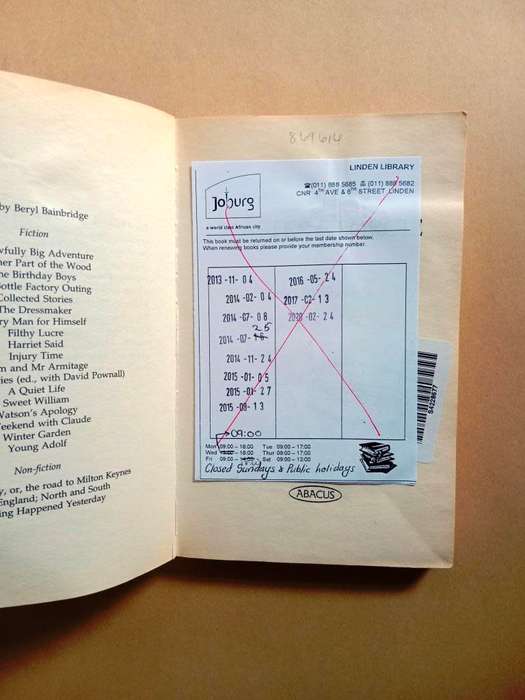 by Beryl Bainbridge
Fiction
wfully Big Adventure
her Part of the Wood
he Birthday Boys
Bottle Factory Outing
Collected Stories
The Dressmaker
ry Man for Himself
Filthy Lucre
Harriet Said
Injury Time
m and Mr Armitage
ies (ed., with David Pownall)
A Quiet Life
Sweet William
Watson's Apology
Weekend with Claude
Winter Garden
Young Adolf
Non-fiction
y, or, the road to Milton Keynes
England; North and South
ing Happened Yesterday
LINDEN LIBRARY
(011) 888 5685 (011) 888 5682
CNR 4TH AVE & 6TH STREET LINDEN
Joburg
a world class African city
This book must be returned on or before the last date shown below.
When renewing books please provide your membership number.
2013 -11- 04
2014 -02- 04
2014 -07- 08
25
2014 -07-
2014 -11- 24
2015 -01- 05
2015 -01- 27
2015 -09- 13
2016 -05- 24
2017 -02- 13
2020 -02- 24
09:00
Mon 09:00 – 18:00 Tue 09:00 – 17:00
Wed – 18:00 Thur 09:00 – 17:00
Fri 09:00 – Sat 09:00 – 13:00
Closed Sundays & Public holidays
ABACUS